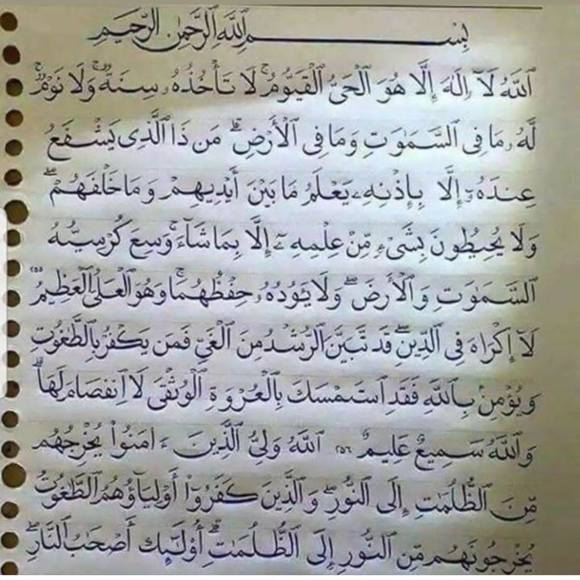 بِسْمِ ٱللَّهِ ٱلرَّحْمَٰنِ ٱلرَّحِيمِ
ٱللَّهُ لَآ إِلَٰهَ إِلَّا هُوَ ٱلْحَىُّ ٱلْقَيُّومُ ۚ لَا تَأْخُذُهُۥ سِنَةٌ وَلَا نَوْمٌ ۚ
لَّهُۥ مَا فِى ٱلسَّمَٰوَٰتِ وَمَا فِى ٱلْأَرْضِ ۗ مَن ذَا ٱلَّذِى يَشْفَعُ
عِندَهُۥٓ إِلَّا بِإِذْنِهِۦ ۚ يَعْلَمُ مَا بَيْنَ أَيْدِيهِمْ وَمَا خَلْفَهُمْ ۖ
وَلَا يُحِيطُونَ بِشَىْءٍ مِّنْ عِلْمِهِۦٓ إِلَّا بِمَا شَآءَ ۚ وَسِعَ كُرْسِيُّهُ
ٱلسَّمَٰوَٰتِ وَٱلْأَرْضَ ۖ وَلَا يَـُٔودُهُۥ حِفْظُهُمَا ۚ وَهُوَ ٱلْعَلِىُّ ٱلْعَظِيمُ ٢٥٥
لَآ إِكْرَاهَ فِى ٱلدِّينِ ۖ قَد تَّبَيَّنَ ٱلرُّشْدُ مِنَ ٱلْغَىِّ ۚ فَمَن يَكْفُرْ بِٱلطَّٰغُوتِ
وَيُؤْمِنۢ بِٱللَّهِ فَقَدِ ٱسْتَمْسَكَ بِٱلْعُرْوَةِ ٱلْوُثْقَىٰ لَا ٱنفِصَامَ لَهَا ۗ
وَٱللَّهُ سَمِيعٌ عَلِيمٌ ٢٥٦ ٱللَّهُ وَلِىُّ ٱلَّذِينَ ءَامَنُوا۟ يُخْرِجُهُم
مِّنَ ٱلظُّلُمَٰتِ إِلَى ٱلنُّورِ ۖ وَٱلَّذِينَ كَفَرُوٓا۟ أَوْلِيَآؤُهُمُ ٱلطَّٰغُوتُ
يُخْرِجُونَهُم مِّنَ ٱلنُّورِ إِلَى ٱلظُّلُمَٰتِ ۗ أُو۟لَٰٓئِكَ أَصْحَٰبُ ٱلنَّارِ ۖ